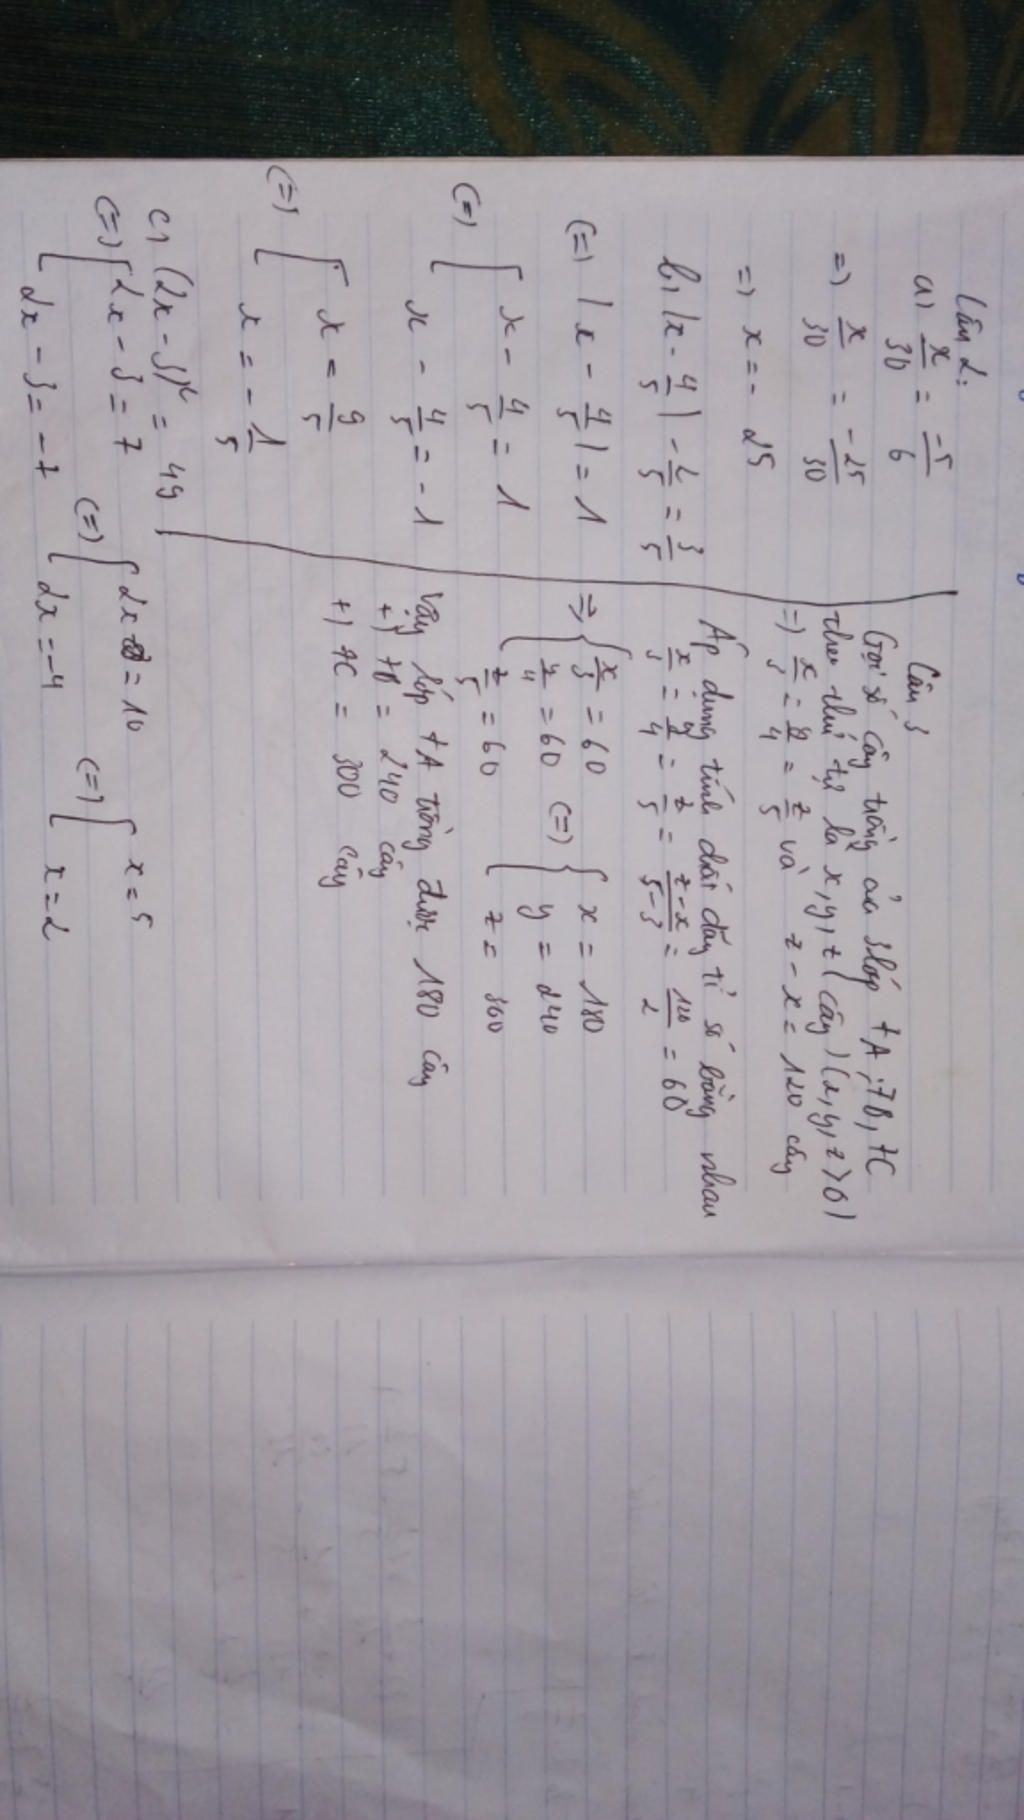 Câu 2:
a) x/30 = -5/6
=) x/30 = -25/30
=) x = - 25
b) |x - 4/5| - 2/5 = 3/5
(=) |x - 4/5| = 1
(=) [ x - 4/5 = 1
x - 4/5 = -1
(=) [ x = 9/5
x = -1/5
c) (2x - 3)² = 49
(=) [ 2x - 3 = 7 (=) [ 2x = 10 (=) [ x = 5
2x - 3 = -7 2x = -4 x = 2
Câu 3
Gọi số cây trồng của 3 lớp 7A, 7B, 7C
theo thứ tự là x, y, z (cây) (x, y, z > 0)
=) x/3 = y/4 = z/5 và z - x = 120 cây
Áp dụng tính chất dãy tỉ số bằng nhau
x/3 = y/4 = z/5 = z-x/5-3 = 120/2 = 60
=) { x/3 = 60 (=) { x = 180
y/4 = 60 y = 240
z/5 = 60 z = 300
Vậy lớp 7A trồng được 180 cây
+) 7B = 240 cây
+) 7C = 300 cây